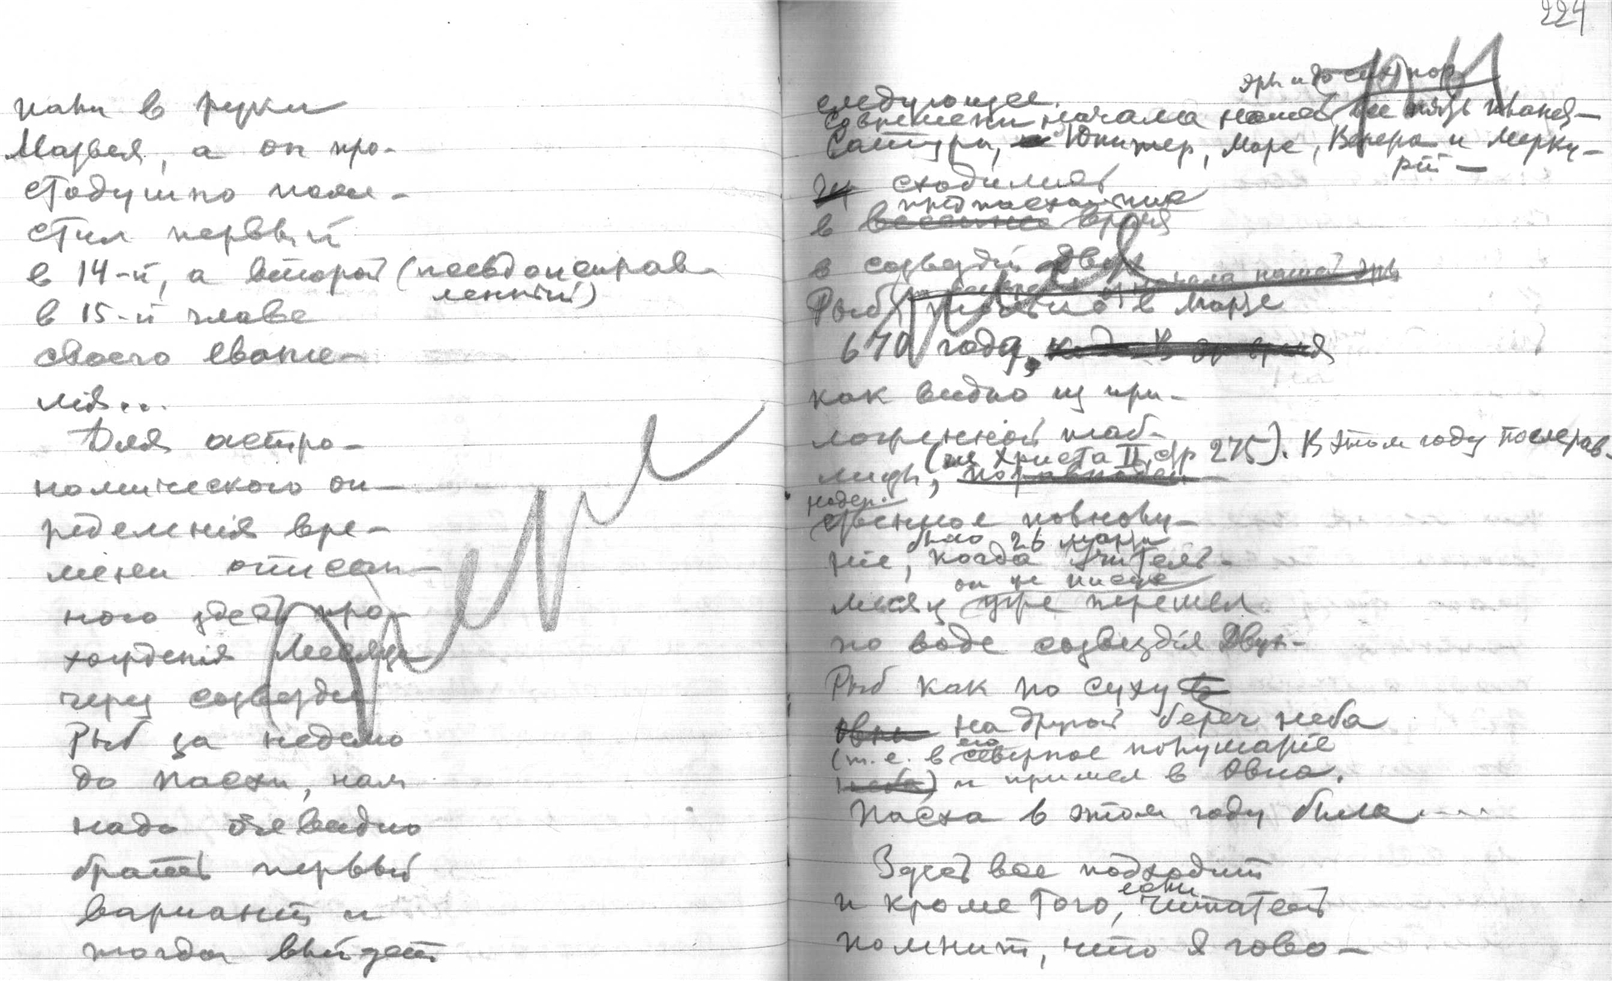 пали в руки
Матвея, а он про-
стодушно поме-
стил первый
в 14-й, а второй (псевдоисправ-
ленный)
в 15-й главе
своего Еванге-
лія...
Для астро-
номического оп-
ределенія вре-
мени описан-
ного здесь про-
хожденія Месяца
через созвездие
Рыб за неделю
до пасхи, нам
надо очевидно
брать первый
вариант и
тогда выйдет
224
следующее.
эры и до сих пор
С времени начала нашей все пять планет-
Сатурн, Юпитер, Марс, Венера и Мерку-
рій —
сходились
в предпасхальное время
в созвездіи Двух
начала нашей эры
Рыб только в марте
670 года,
как видно из при-
ложенной таб-
лицы, (из Христа II, стр 275). В этом году послерав-
ноден-
ственное новолу-
ніе, было 26 марта
когда Учитель-
месяц он же
утре перешел
по воде созвездія Двух-
Рыб как по суху
на другой берег неба
(т.е. в его северное полушаріе
неба) и пришел в Овна.
Пасха в этом году была ....
Здесь все подходит
и кроме того, если читатель
помнит, что я гово-